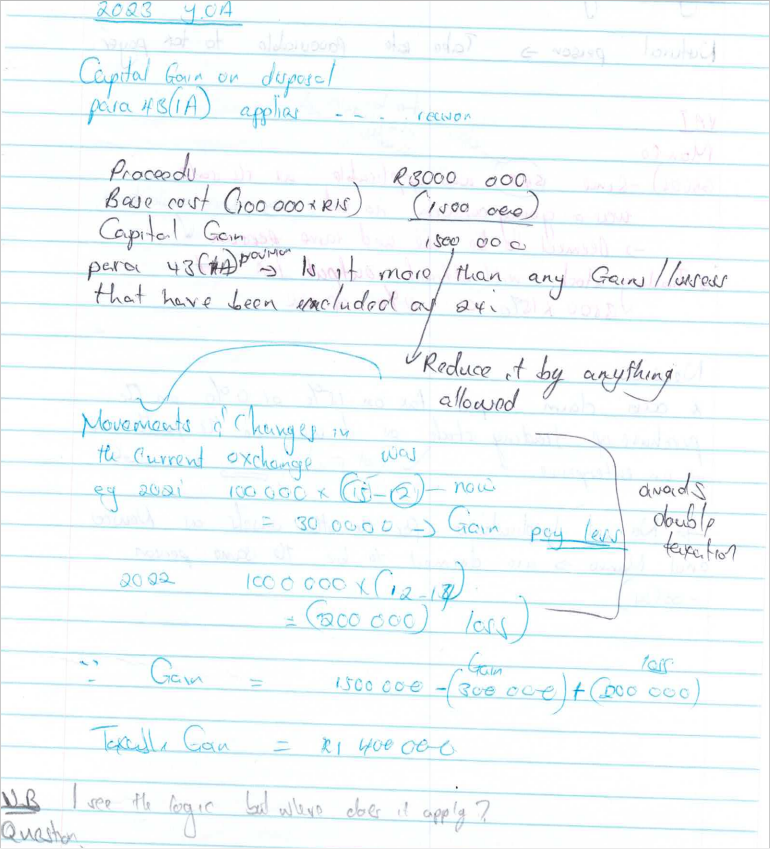 2023 Y.O.A
Capital Gain on disposal
para 43(1A) applies - - - . reason
Proceeds R3000 000
Base cost (100 000 x R15) (1500 000)
Capital Gain 1500 000
para 43(1A) → Is it more than any Gains/lossess
that have been excluded as 24i
Reduce it by anything
allowed
Movements & Changes in
the current exchange was
eg 2021 100 000 x (15 - 12) - now
= 300000 → Gain pay less
2022 1000 000 x (12 - 14)
= (200 000) loss)
avoids
double
taxation
Gain loss
∵ Gain = 1500 000 - (300 000) + (200 000)
Taxable Gain = R1 400 000
N.B I see the logic but where does it apply?
Question